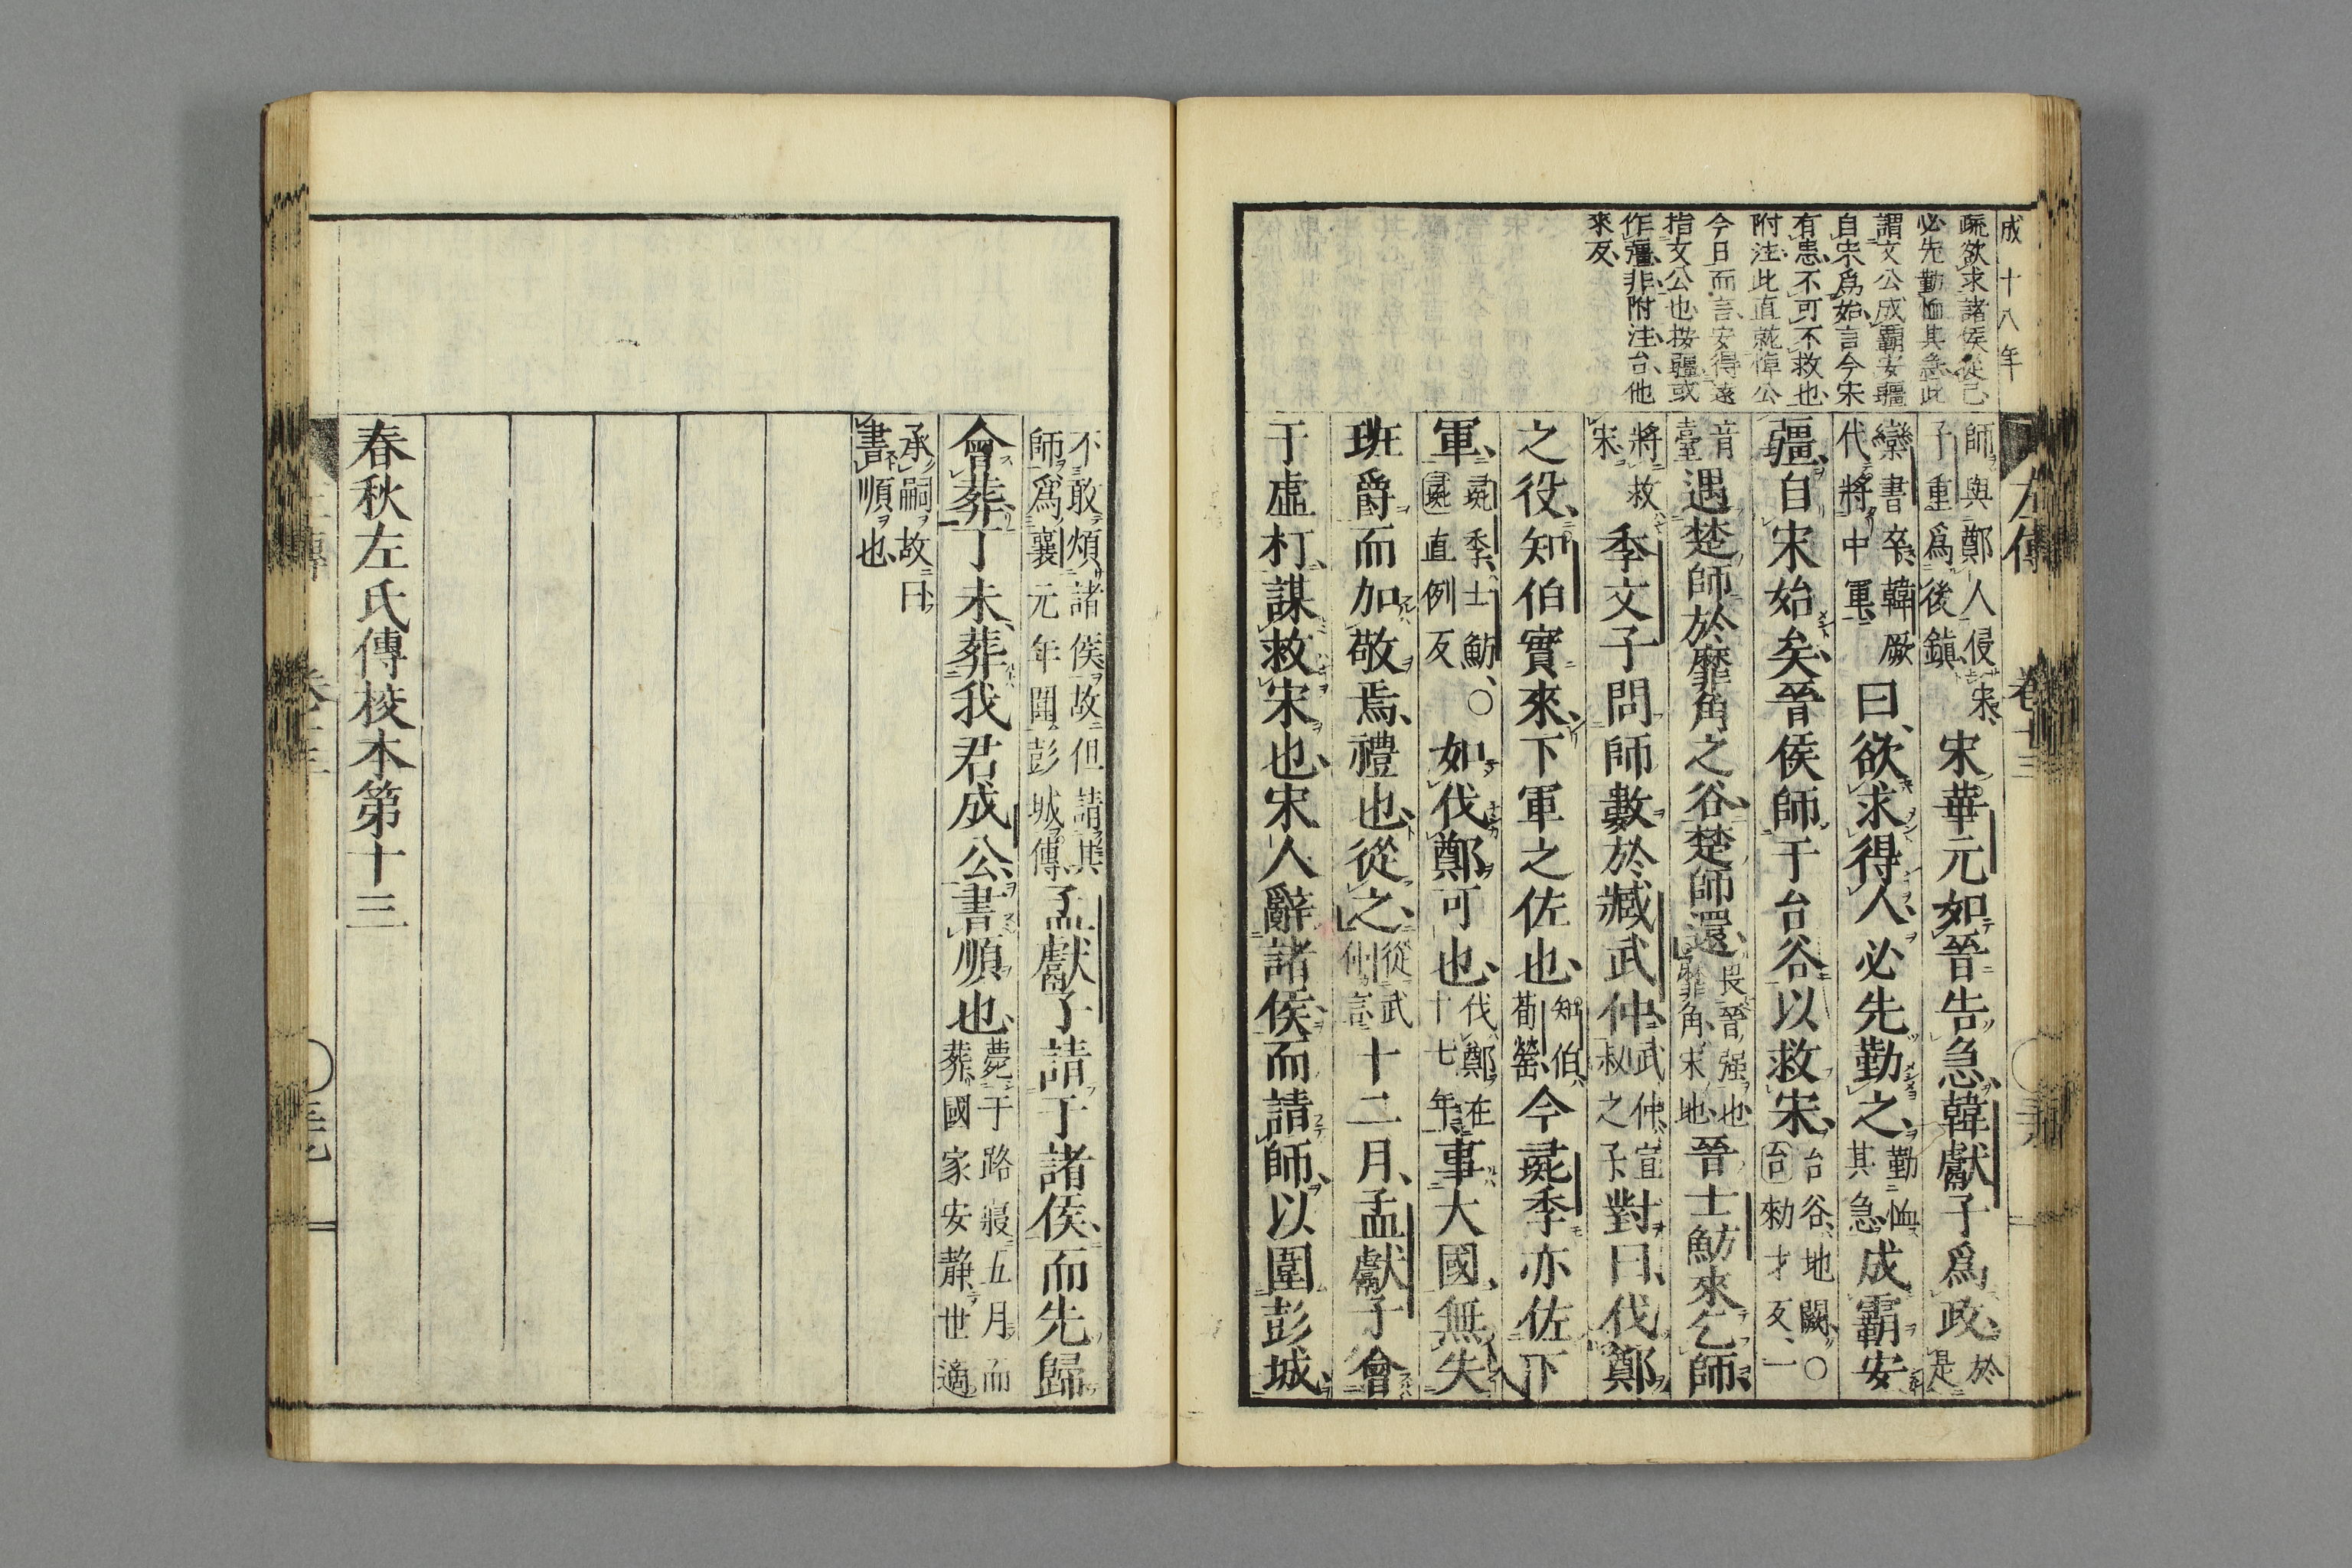 成十八年
疏欲求諸侯從己
必先勤恤其急此
謂文公成霸安疆
自宋爲始言今宋
有患不可不救也
附注此直就悼公
今日而言安得遠
指文公也按疆或
作彊非附注台他
來反
師與鄭人侵宋
子重爲後鎮
宋華元如晉告急韓獻子爲政
於
是
欒書卒韓厥
代將中軍
曰欲求得人必先勤之
勤恤
其急
成霸安
疆自宋始矣晉侯師于台谷以救宋
台谷地闕〇
台勑才反一
音
臺
遇楚師於靡角之谷楚師還
畏晉强也
靡角宋地
晉士魴來乞師
將救
宋
季文子問師數於臧武仲
武仲宣
叔之子
對曰伐鄭
之役知伯實來下軍之佐也
知伯
荀罃
今彘季亦佐下
軍
彘季士魴〇
彘直例反
如伐鄭可也
伐鄭在
十七年
事大國無失
班爵而加敬焉禮也從之
從武
仲言
十二月孟獻子會
于虛朾謀救宋也宋人辭諸侯而請師以圍彭城
不敢煩諸侯故但請其
師爲襄元年圍彭城傳
孟獻子請于諸侯而先歸
會葬丁未葬我君成公書順也
薨于路寢五月而
葬國家安靜世適
承嗣故曰
書順也
春秋左氏傳校本第十三